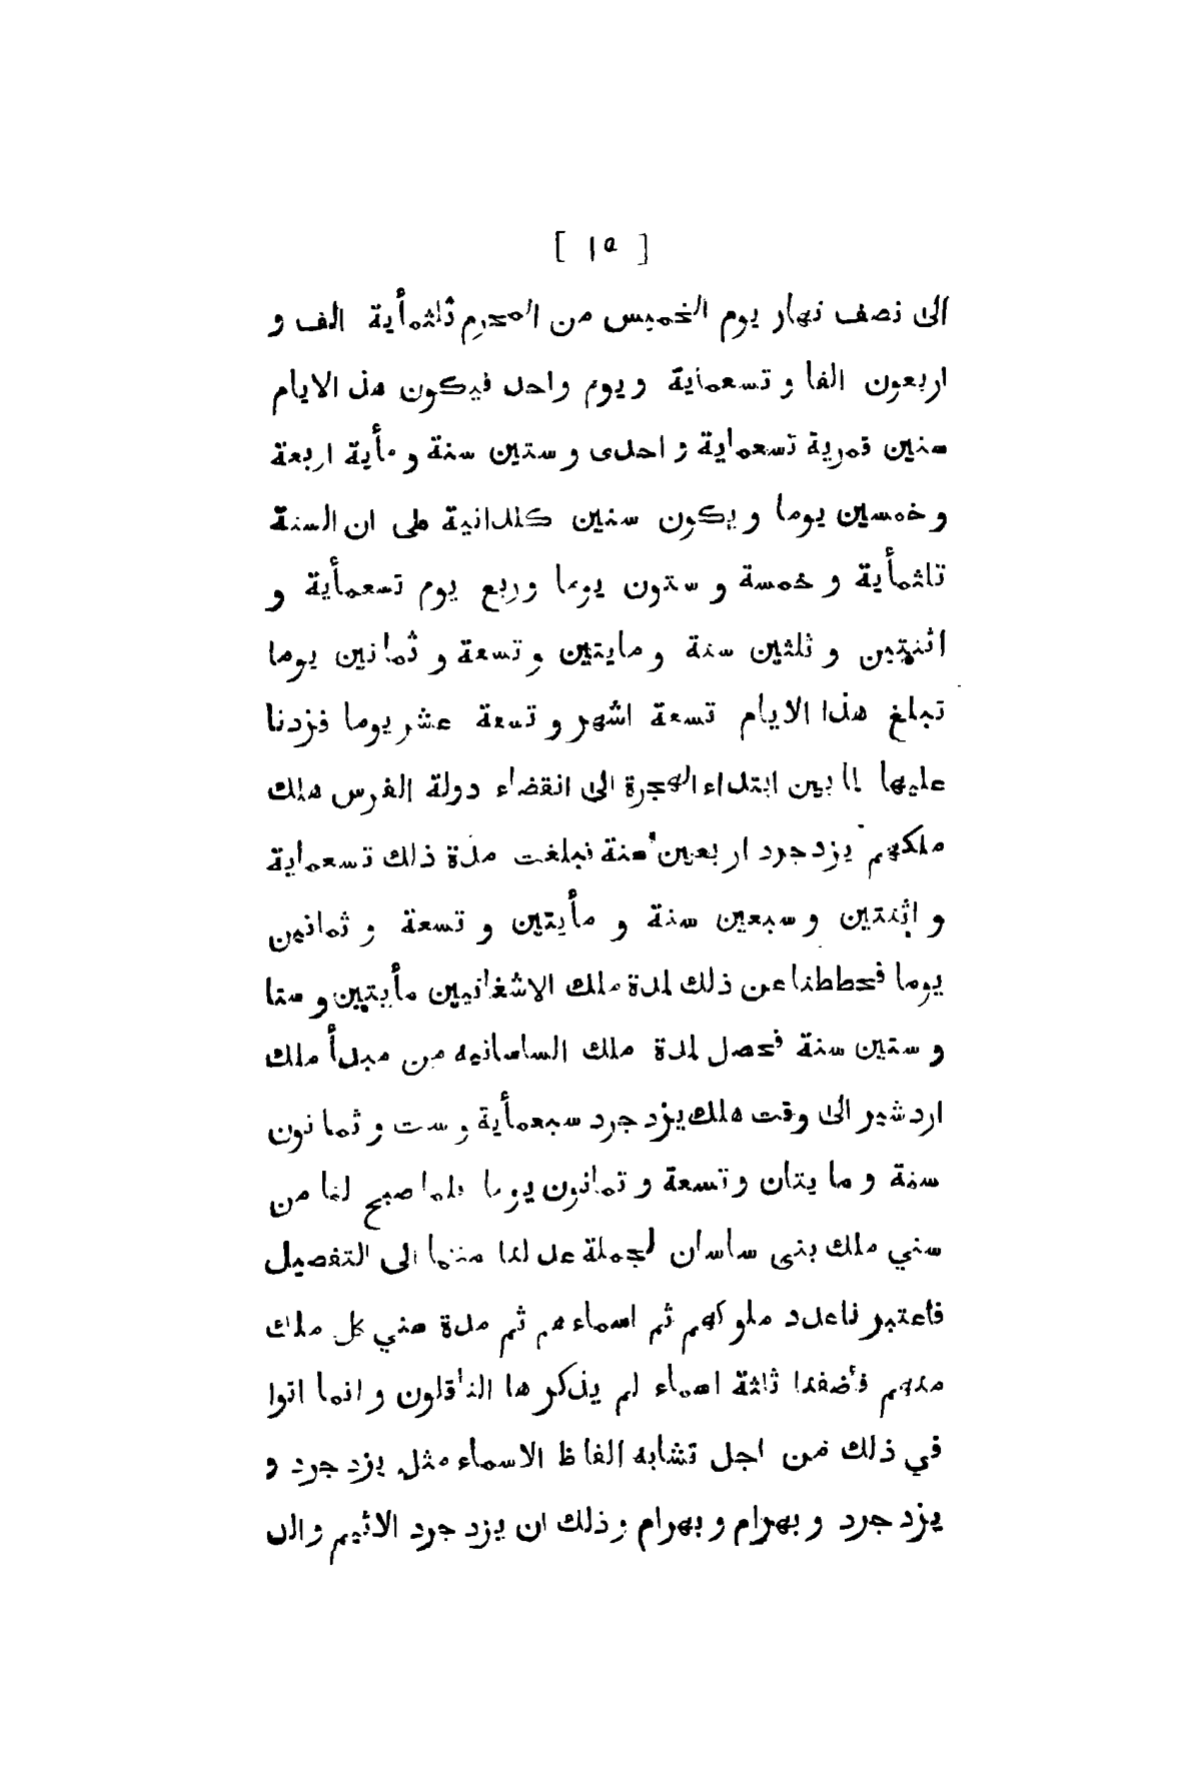 [ ١٥ ]
الى نصف نهار يوم الخميس من المحرم ثلثمأية الف و
اربعون الفا و تسعماية ويوم واحد فيكون هذ الايام
سنين قمرية تسعماية و احدى و ستين سنة و مأية اربعة
و خمسين يوما و يكون سنين كلدانية على ان السنة
ثلثمأية و خمسة و ستون يوما وربع يوم تسعمأية و
اثنتين و ثلثين سنة و مايتين و تسعة و ثمانين يوما
تبلغ هذا الايام تسعة اشهر و تسعة عشر يوما فزدنا
عليها لما بين ابتداء الهجرة الى انقضاء دولة الفرس هلك
ملكهم يزدجرد اربعين سنة فبلغت مدة ذلك تسعماية
و اثنتين و سبعين سنة و مأيتين و تسعة و ثمانين
يوما فحططنا عن ذلك لمدة ملك الاشغانيين مأيتين و ستا
و ستين سنة فحصل لمدة ملك الساسانيه من مبدأ ملك
اردشير الى وقت هلك يزد جرد سبعمأية و ست و ثما نون
سنة و ما يتان و تسعة و ثمانون يوما فلما صبح لنا من
سني ملك بنى ساسان لجملة عد لنا منها الى التفصيل
فأعتبر ناعدد ملو كهم ثم اسماء هم ثم مدة سني كل ملك
منهم فأضفنا ثلثة اسماء لم يذكر ها النأقلون و انما اتوا
في ذلك من اجل تشابه الفاظ الاسماء مثل يزد جرد و
يزد جرد و بهرام و بهرام و ذلك ان يزد جرد الاثيم والد